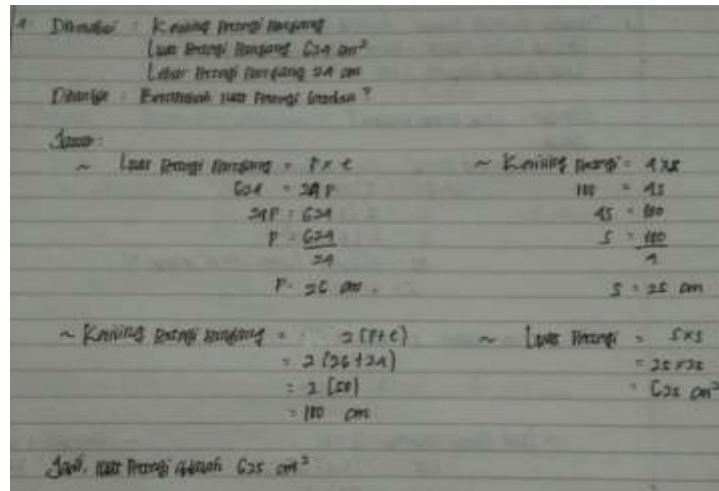 1. Diketahui : Keliling Persegi Panjang
Luas Persegi Panjang 624 cm²
Lebar Persegi Panjang 24 cm
Ditanya : Berapakah luas Persegi tersebut ?
Jawab :
~ Luas Persegi Panjang = P x l
624 = 24 P
24 P = 624
P = 624
24
P = 26 cm.
~ Keliling Persegi = 4 x s
100 = 4s
4s = 100
s = 100
4
s = 25 cm
~ Keliling Persegi Panjang = 2 (P+l)
= 2 (26+24)
= 2 (50)
= 100 cm
~ Luas Persegi = s x s
= 25 x 25
= 625 cm²
Jadi, luas Persegi adalah 625 cm²